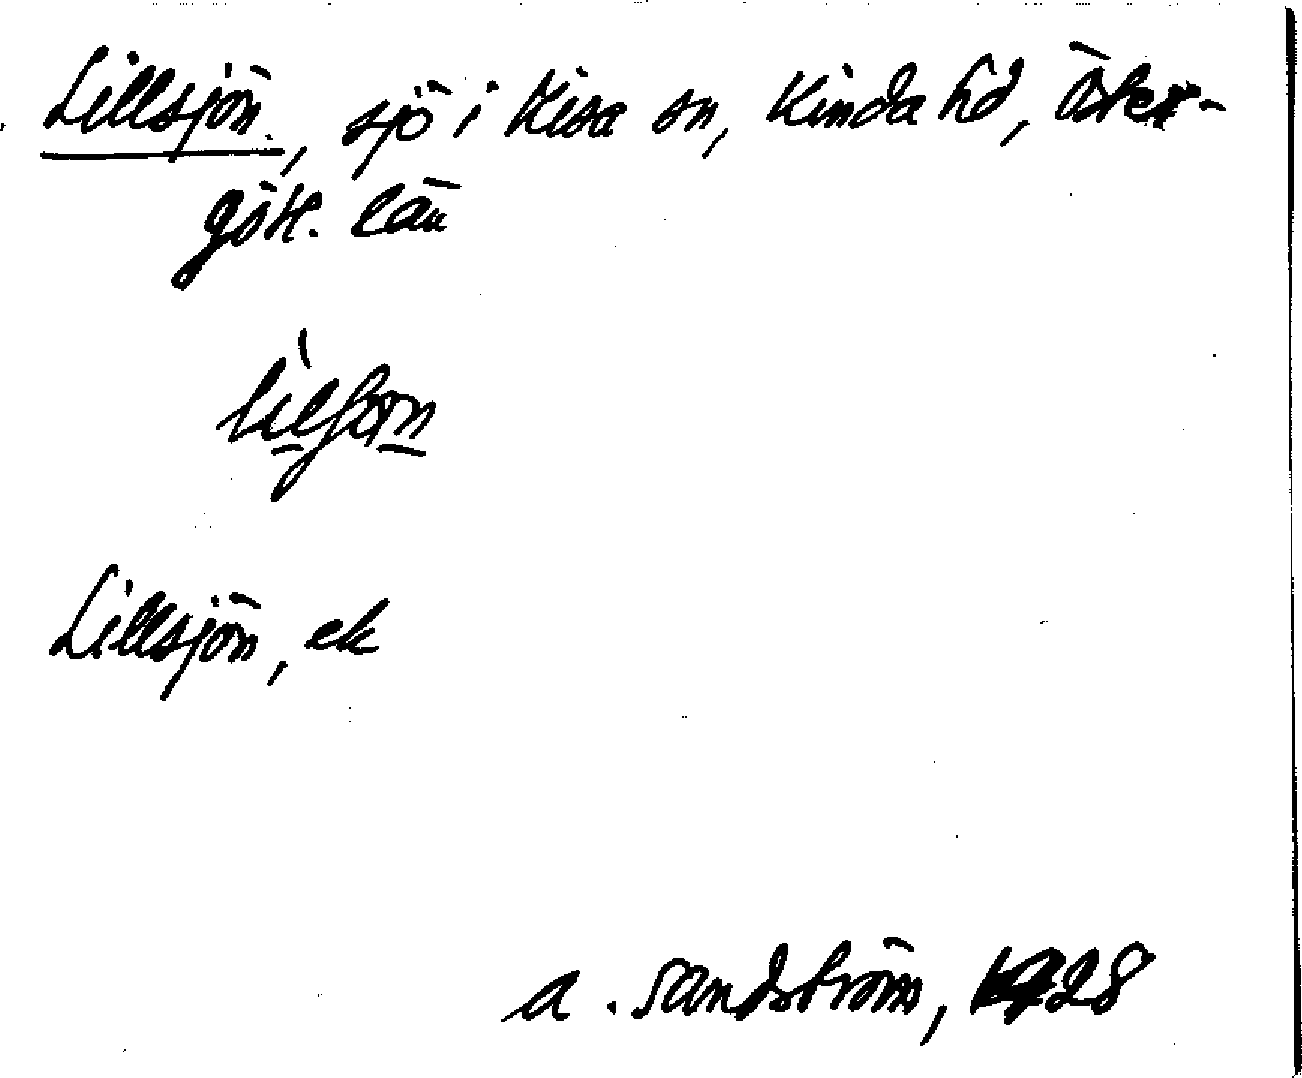 Lillsjön, sjö i Kisa sn, Kinda hd, Öster-
göt. län
Lillsjön, ek
A. Sandström, 1928